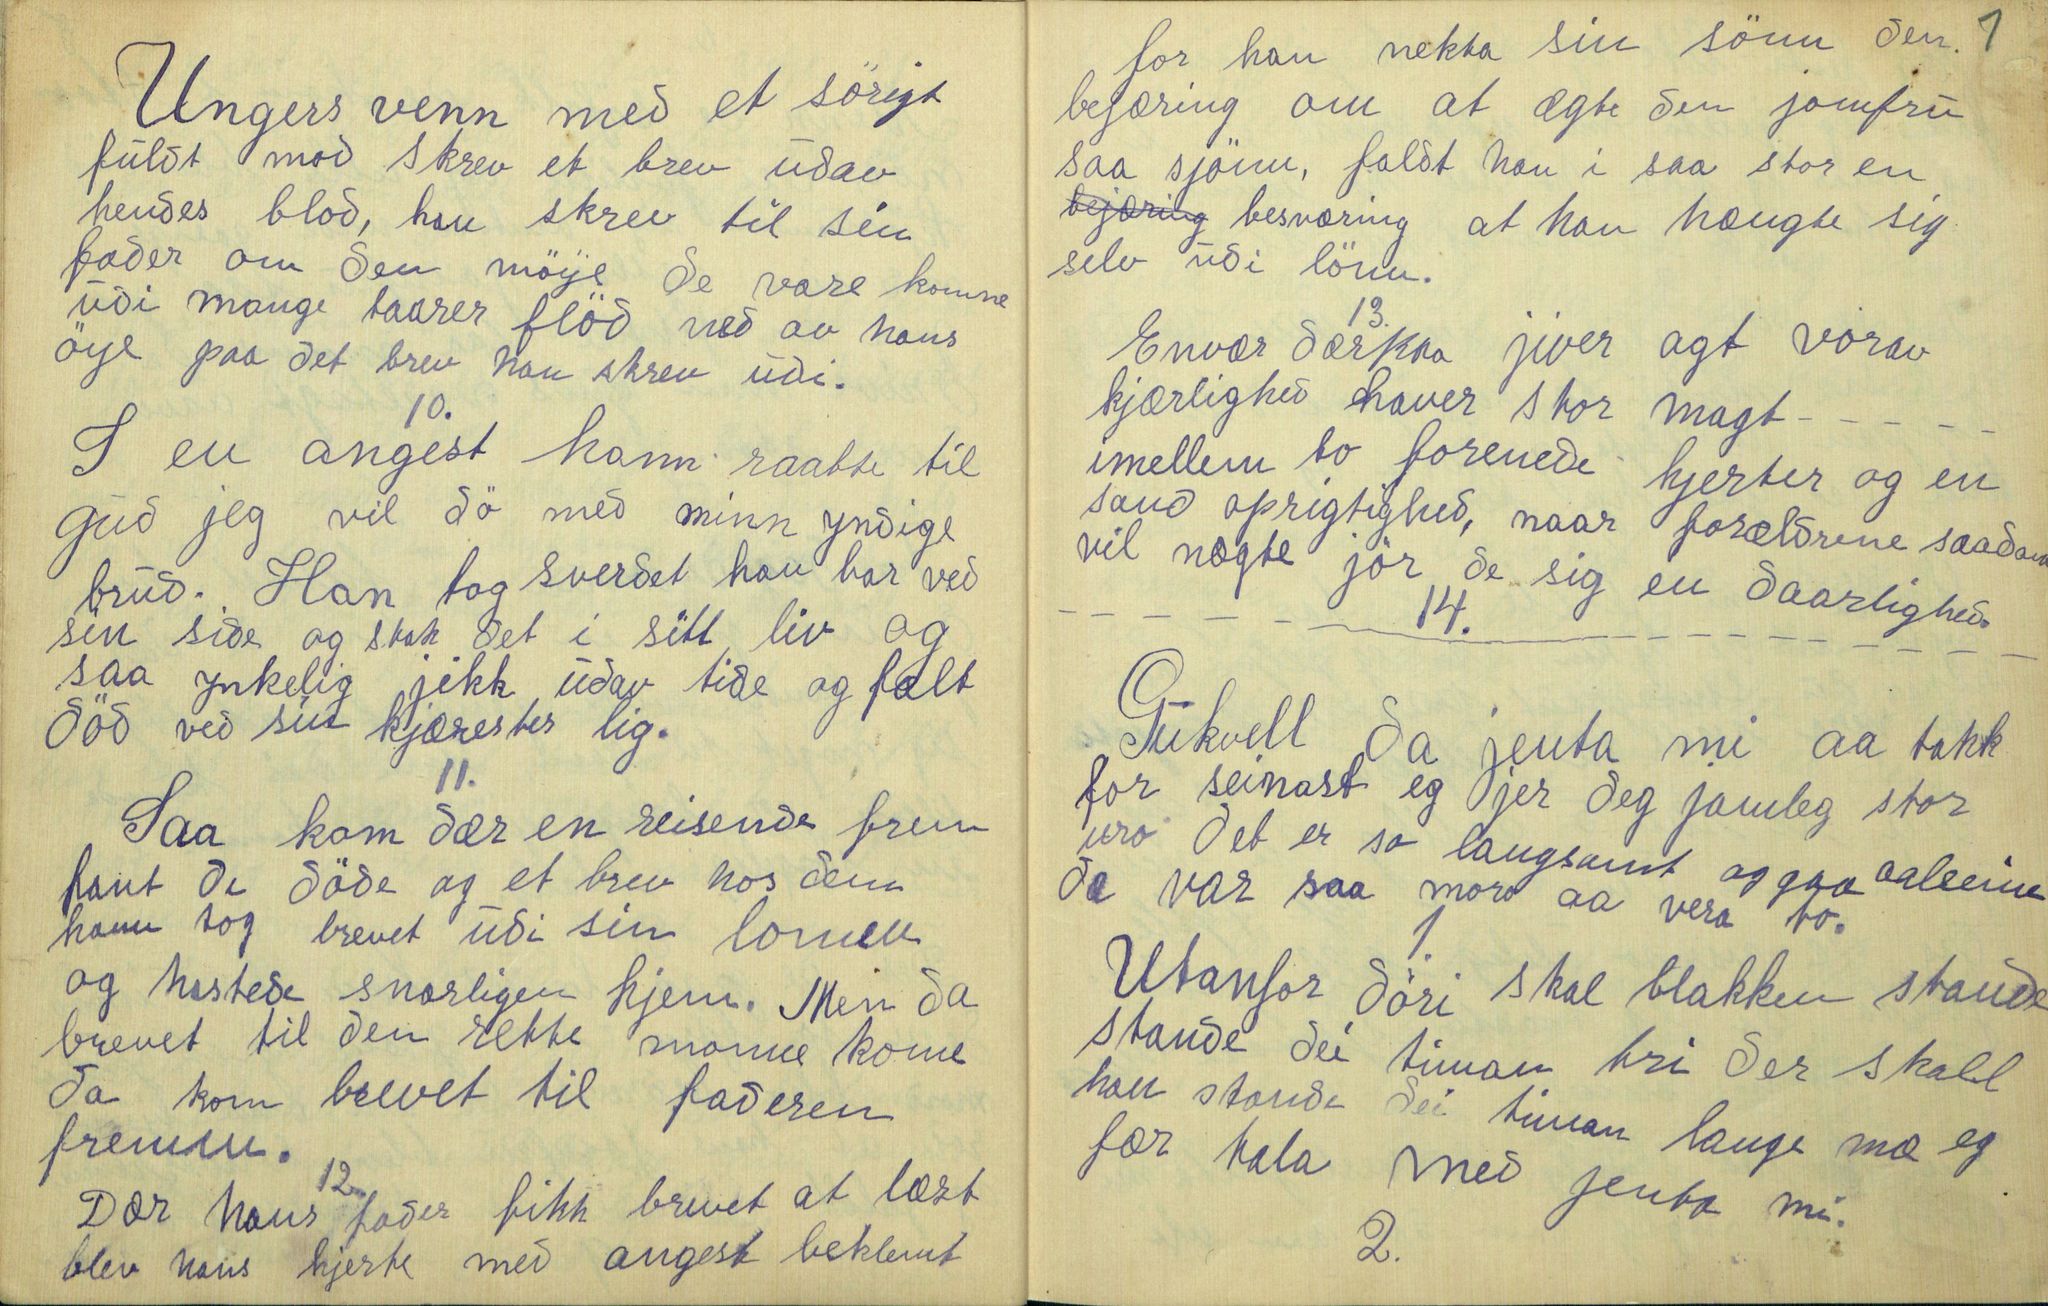 Ungers venn med et sörigt
fuldt mod skrev et brev udav
hendes blod, han skrev til sin
fader om den möye de vare komne
udi mange taarer flöd ned av hans
öye paa det brev han skrev udi.
10.
I en angest hann raabte til
gud jeg vil dö med minn yndige
brud. Han tog sverdet han bar ved
sin side og stak det i sitt liv og
saa ynkelig jikk udav tide og falt
död ved sin kjærestes lig.
11.
Saa kom dær en reisende frem
fant de döde og et brev hos dem
hann tog brevet udi sin lomen
og hastede snarligen hjem. Men da
brevet til den rette monne kome
da kom brevet til faderen
fremm.
12.
Dær hans fader fikk brevet at læst
blev hans hjerte med angest beklemt
1
for han nekta sin sönn den.
bejæring om at ægte den jomfru
saa sjönn, faldt han i saa stor en
bejæring besværing at han hængte sig
selv udi lönn.
13.
Envær dærpaa jiver agt vorav
kjærlighed haver stor magt - - - - -
imellem to forenede hjerter og en
sand oprigtighed, naar forældrene saadan
vil nægte jör de sig en daarlighed.
14.
Gukvell da jenta mi aa takk
for seinast eg jer deg jamleg stor
uro det er so langsamt og gaa aaleine
da var saa moro aa vera to.
1
Utanfor döri skal blakken stande
stande dei timan tri der skall
han stande dei timan lange mæ eg
fær tala med jenta mi.
2.